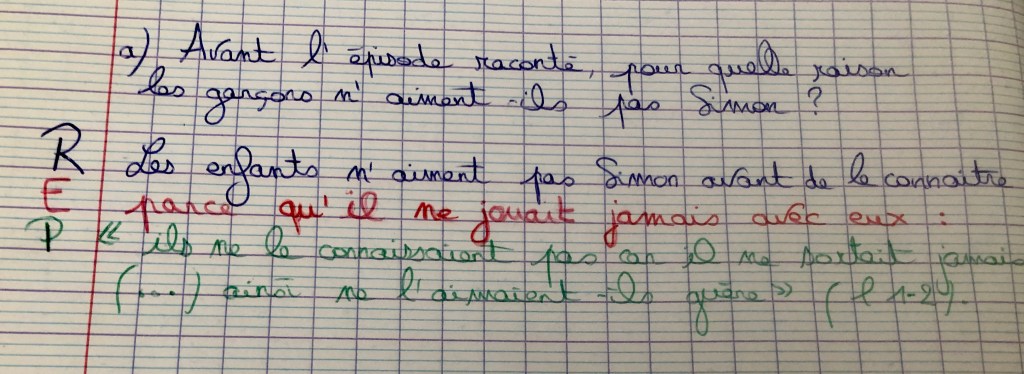 a) Avant l'épisode raconté, pour quelle raison
les garçons n'aiment-ils pas Simon ?
R Les enfants n'aiment pas Simon avant de le connaitre
E parce qu'il ne jouait jamais avec eux :
P « ils ne le connaissaient pas car il ne sortait jamais
(....) ainsi ne l'aimaient-ils guère » (l 1-2).